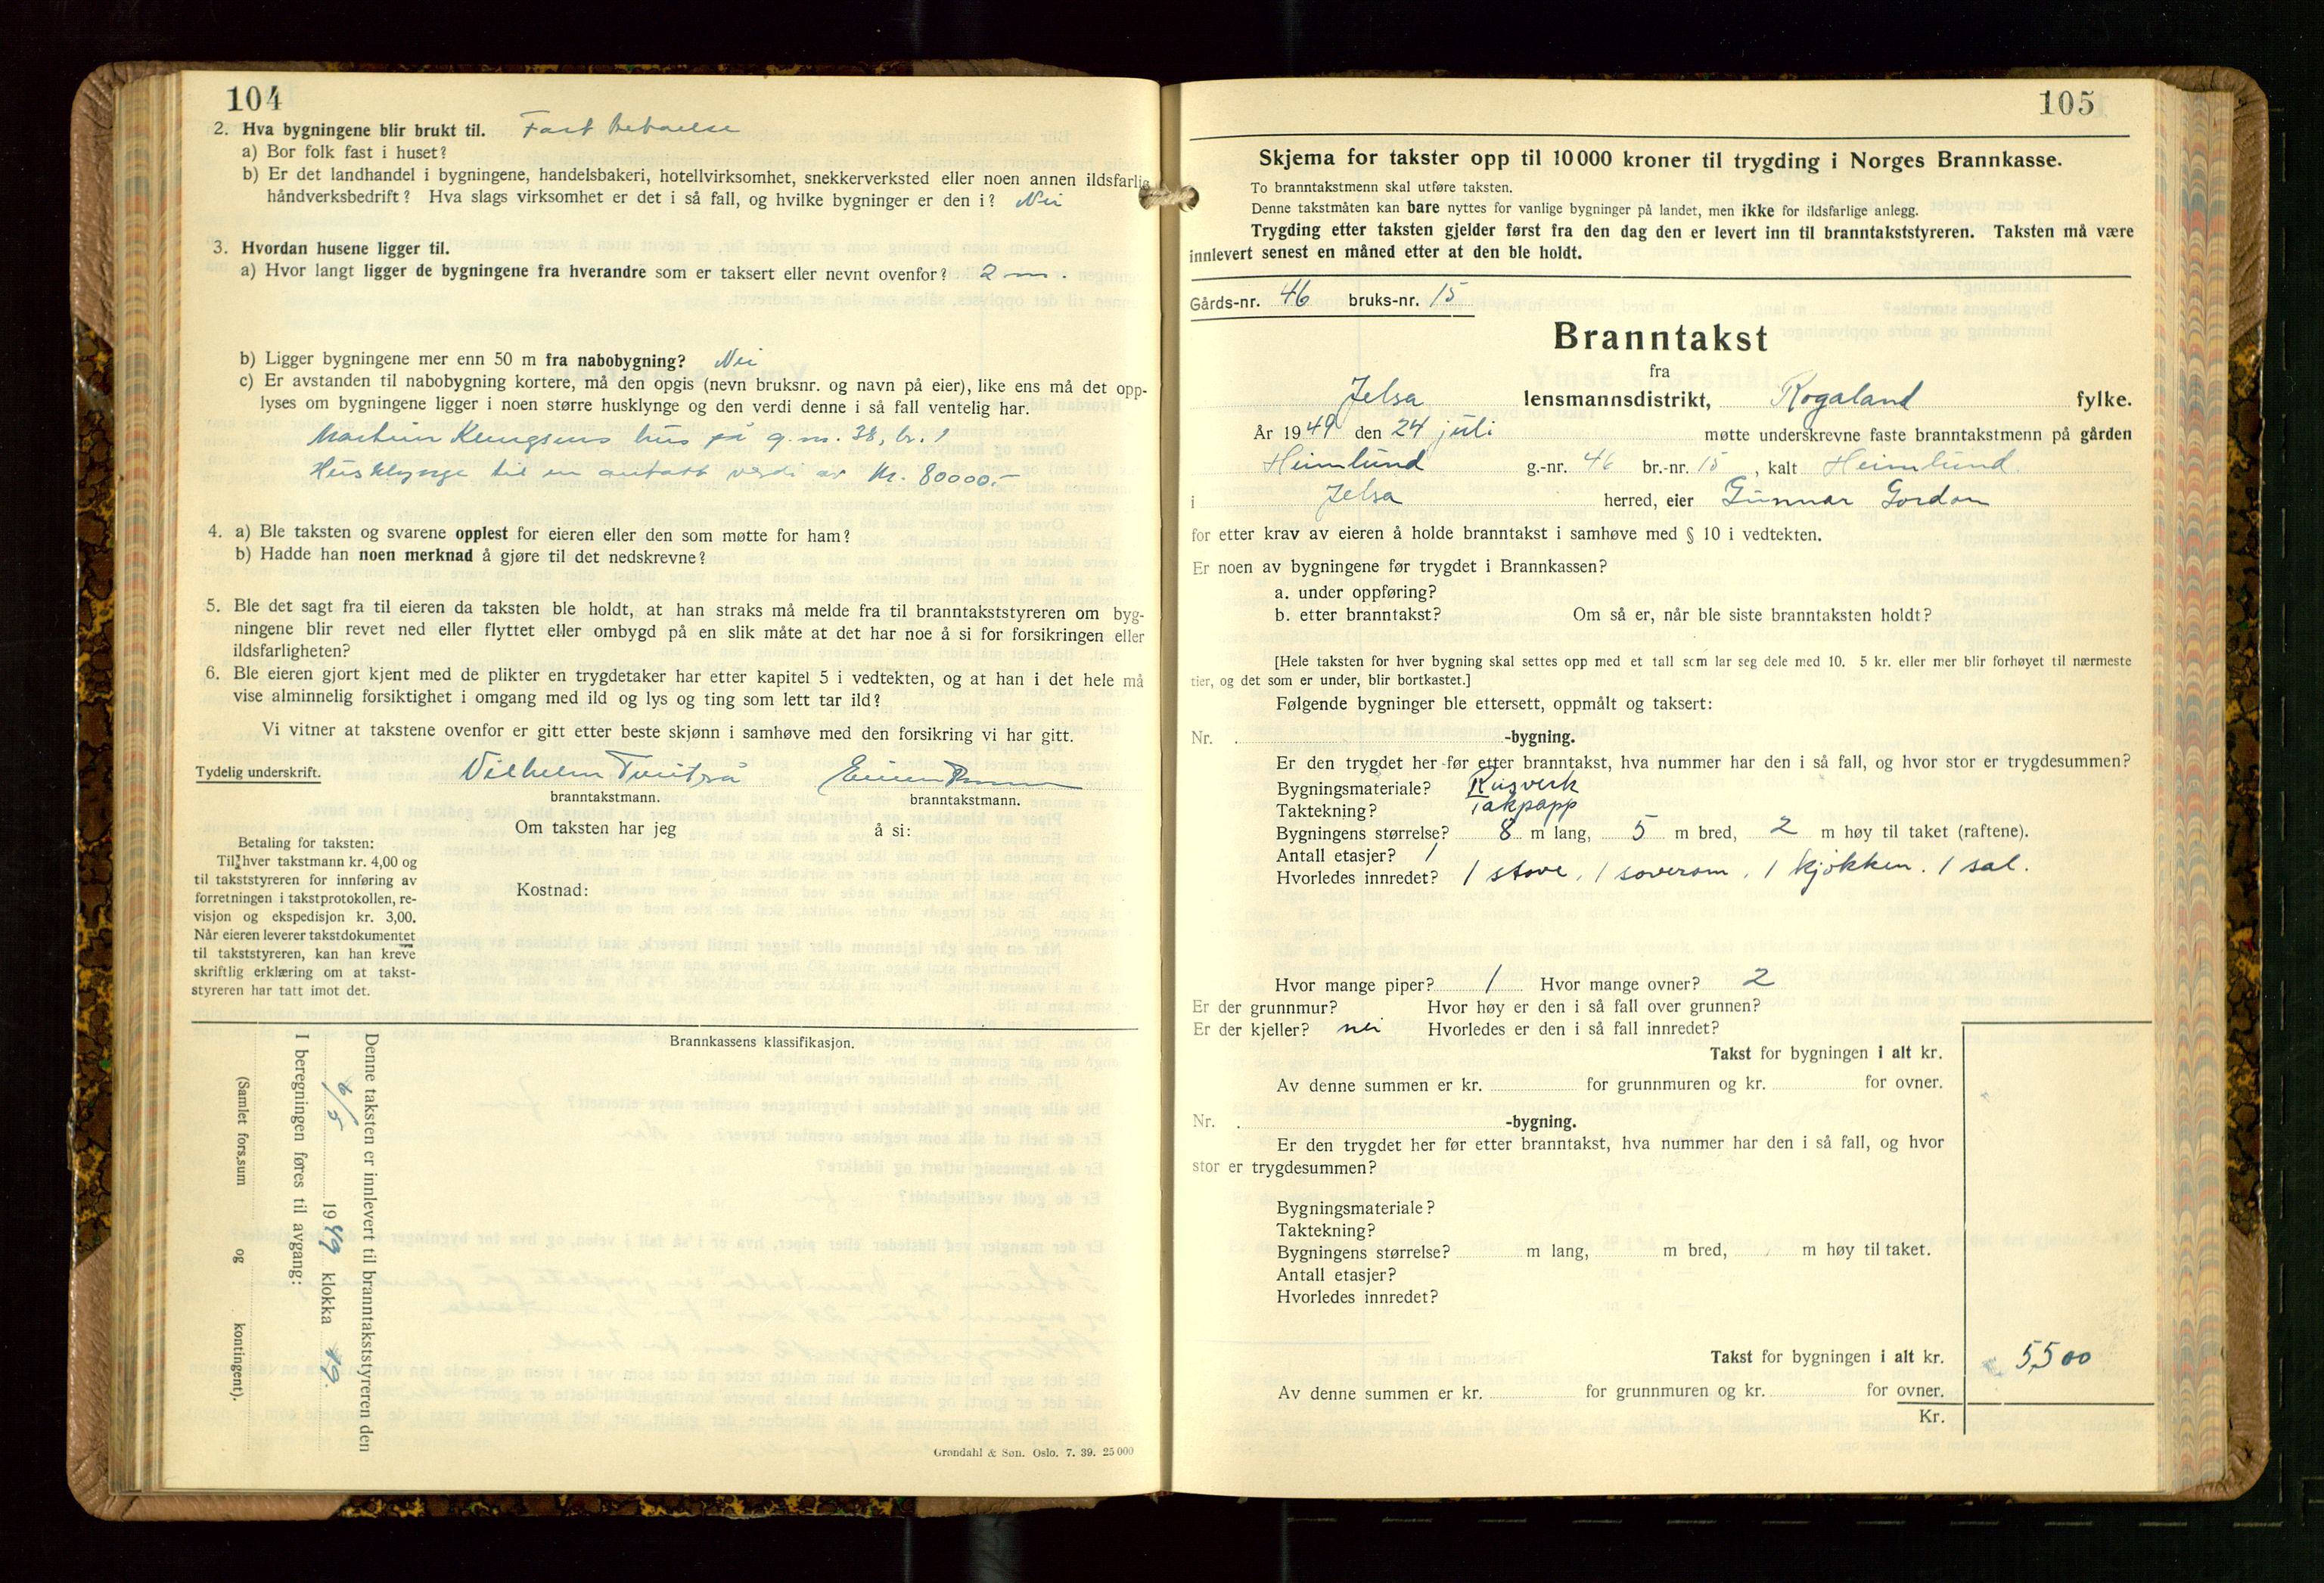 104
2. Hva bygningene blir brukt til. Fast beboelse
a) Bor folk fast i huset?
b) Er det landhandel i bygningene, handelsbakeri, hotellvirksomhet, snekkerverksted eller noen annen ildsfarlig
håndverksbedrift? Hva slags virksomhet er det i så fall, og hvilke bygninger er den i? Nei
3. Hvordan husene ligger til.
a) Hvor langt ligger de bygningene fra hverandre som er taksert eller nevnt ovenfor? 2 m.
b) Ligger bygningene mer enn 50 m fra nabobygning? Nei
c) Er avstanden til nabobygning kortere, må den opgis (nevn bruksnr. og navn på eier), like ens må det opp-
lyses om bygningene ligger i noen større husklynge og den verdi denne i så fall ventelig har.
hus på g.nr. 38, br. 1
Husklynge til en antatt verdi av kr. 80000.-
4. a) Ble taksten og svarene opplest for eieren eller den som møtte for ham?
b) Hadde han noen merknad å gjøre til det nedskrevne?
5. Ble det sagt fra til eieren da taksten ble holdt, at han straks må melde fra til branntakststyreren om byg-
ningene blir revet ned eller flyttet eller ombygd på en slik måte at det har noe å si for forsikringen eller
ildsfarligheten?
6. Ble eieren gjort kjent med de plikter en trygdetaker har etter kapitel 5 i vedtekten, og at han i det hele må
vise alminnelig forsiktighet i omgang med ild og lys og ting som lett tar ild?
Vi vitner at takstene ovenfor er gitt etter beste skjønn i samhøve med den forsikring vi har gitt.
Tydelig underskrift. Vilhelm
branntakstmann. branntakstmann.
Om taksten har jeg å si:
Betaling for taksten:
Til hver takstmann kr. 4,00 og
til takststyreren for innføring av
forretningen i takstprotokollen, re-
visjon og ekspedisjon kr. 3,00.
Når eieren leverer takstdokumentet
til takststyreren, kan han kreve
skriftlig erklæring om at takst-
styreren har tatt imot det.
Kostnad:
Brannkassens klassifikasjon.
Denne taksten er innlevert til branntakststyreren den
6/5 1949 klokka 19.
I beregningen føres til avgang:
(Samlet fors.sum og kontingent).
Grøndahl & Søn. Oslo. 7. 39. 25 000
105
Skjema for takster opp til 10 000 kroner til trygding i Norges Brannkasse.
To branntakstmenn skal utføre taksten.
Denne takstmåten kan bare nyttes for vanlige bygninger på landet, men ikke for ildsfarlige anlegg.
Trygding etter taksten gjelder først fra den dag den er levert inn til branntakststyreren. Taksten må være
innlevert senest en måned etter at den ble holdt.
Gårds-nr. 46 bruks-nr. 15
Branntakst
fra
Jelsa lensmannsdistrikt, Rogaland fylke.
År 1949 den 24 juli møtte underskrevne faste branntakstmenn på gården
Heimlund g.-nr. 46 br.-nr. 15, kalt Heimlund.
i Jelsa herred, eier Gunnar Gordon
for etter krav av eieren å holde branntakst i samhøve med § 10 i vedtekten.
Er noen av bygningene før trygdet i Brannkassen?
a. under oppføring?
b. etter branntakst? Om så er, når ble siste branntaksten holdt?
[Hele taksten for hver bygning skal settes opp med et tall som lar seg dele med 10. 5 kr. eller mer blir forhøyet til nærmeste
tier, og det som er under, blir bortkastet.]
Følgende bygninger ble ettersett, oppmålt og taksert:
Nr. -bygning.
Er den trygdet her før etter branntakst, hva nummer har den i så fall, og hvor stor er trygdesummen?
Bygningsmateriale? Reisverk
Taktekning? Takpapp
Bygningens størrelse? 8 m lang, 5 m bred, 2 m høy til taket (raftene).
Antall etasjer? 1
Hvorledes innredet? 1 stove, 1 soverom, 1 kjøkken. 1 sal.
Hvor mange piper? 1 Hvor mange ovner? 2
Er der grunnmur? Hvor høy er den i så fall over grunnen?
Er der kjeller? nei Hvorledes er den i så fall innredet?
Takst for bygningen i alt kr.
Av denne summen er kr. for grunnmuren og kr. for ovner.
Nr. -bygning.
Er den trygdet her før etter branntakst, hva nummer har den i så fall, og hvor
stor er trygdesummen?
Bygningsmateriale?
Taktekning?
Bygningens størrelse? m lang, m bred, m høy til taket.
Antall etasjer?
Hvorledes innredet?
Takst for bygningen i alt kr. 5500
Av denne summen er kr. for grunnmuren og kr. for ovner.
Kr.